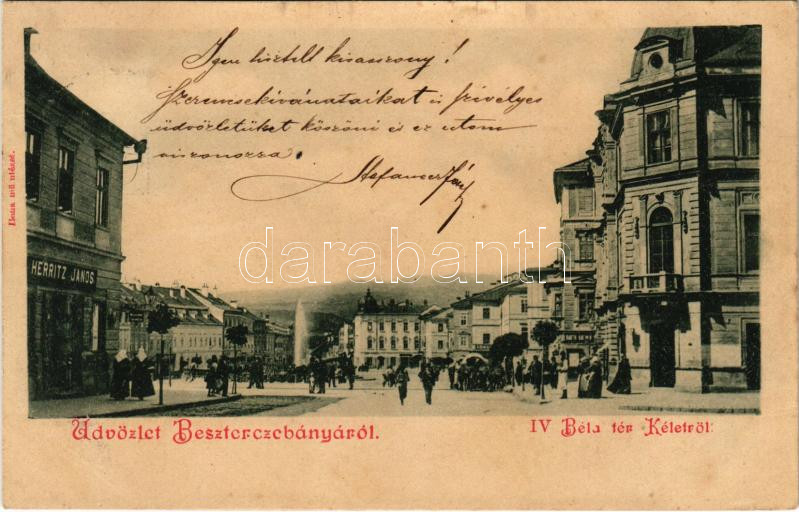 Igen tisztelt kisasszony!
Szerencsekívánataikat és szívélyes
üdvözletüket köszöni és ez uton
viszonozza
HERRITZ JÁNOS
darabanth
Üdvözlet Beszterczebányáról.
IV Béla tér Kéletről: